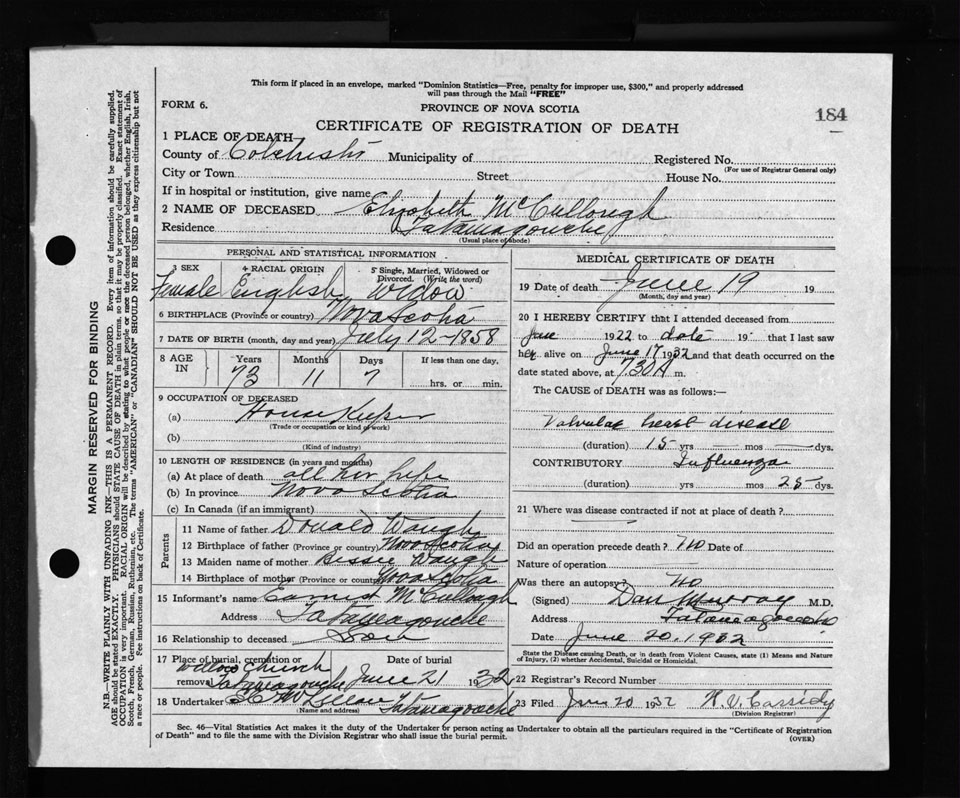 This form if placed in an envelope, marked "Dominion Statistics—Free, penalty for improper use, $300," and properly addressed
will pass through the Mail "FREE"
FORM 6.
PROVINCE OF NOVA SCOTIA
184
CERTIFICATE OF REGISTRATION OF DEATH
1 PLACE OF DEATH
County of Colchester Municipality of Registered No.
(For use of Registrar General only)
City or Town Street House No.
If in hospital or institution, give name
2 NAME OF DECEASED Elizabeth McCullough
Residence Tatamagouche
(Usual place of abode)
PERSONAL AND STATISTICAL INFORMATION
3 SEX 4 RACIAL ORIGIN 5 Single, Married, Widowed or
Divorced. (Write the word)
Female English Widow
6 BIRTHPLACE (Province or country) Nova Scotia
7 DATE OF BIRTH (month, day and year) July 12-1858
8 AGE IN Years Months Days If less than one day,
73 11 7 hrs. or min.
9 OCCUPATION OF DECEASED
(a) House Keeper
(Trade or occupation or kind of work)
(b)
(Kind of industry)
10 LENGTH OF RESIDENCE (in years and months)
(a) At place of death all her life
(b) In province Nova Scotia
(c) In Canada (if an immigrant)
Parents
11 Name of father Donald Waugh
12 Birthplace of father (Province or country) Nova Scotia
13 Maiden name of mother Bessie Waugh
14 Birthplace of mother (Province or country) Nova Scotia
15 Informant's name Earnest McCullough
Address Tatamagouche
16 Relationship to deceased Son
17 Place of burial, cremation or Date of burial
removal Church Tatamagouche June 21 1932
18 Undertaker McLellan Tatamagouche
(Name and address)
MEDICAL CERTIFICATE OF DEATH
19 Date of death June 19 19
(Month, day and year)
20 I HEREBY CERTIFY that I attended deceased from
June 1922 to date 19 that I last saw
her alive on June 17 1932 and that death occurred on
date stated above, at 7.30 A m.
The CAUSE OF DEATH was as follows:—
Valvular heart disease
(duration) 15 yrs mos dys.
CONTRIBUTORY Influenza
(duration) yrs mos 25 dys.
21 Where was disease contracted if not at place of death?
Did an operation precede death? no Date of
Nature of operation
Was there an autopsy? no
(Signed) Dan Murray M.D.
Address Tatamagouche
Date June 20. 1932
State the Disease causing Death, or in death from Violent Causes, state (1) Means and Nature
of Injury, (2) whether Accidental, Suicidal or Homicidal.
22 Registrar's Record Number
23 Filed June 20 1932 Cassidy
(Division Registrar)
Sec. 46—Vital Statistics Act makes it the duty of the Undertaker or person acting as Undertaker to obtain all the particulars required in the "Certificate of Registration
of Death" and to file the same with the Division Registrar who shall issue the burial permit.
(OVER)
MARGIN RESERVED FOR BINDING
N.B.—WRITE PLAINLY WITH UNFADING INK—THIS IS A PERMANENT RECORD. Every item of information should be carefully supplied.
AGE should be stated EXACTLY. PHYSICIANS should STATE CAUSE OF DEATH in plain terms, so that it may be properly classified. Exact statement of
OCCUPATION is very important. RACIAL ORIGIN will be described by stating to what people or race the deceased person belonged, whether English, Irish,
Scotch, French, German, Russian, Ruthenian, etc. The terms "AMERICAN" or "CANADIAN" SHOULD NOT BE USED as they express citizenship but not
a race or people. See instructions on back of Certificate.